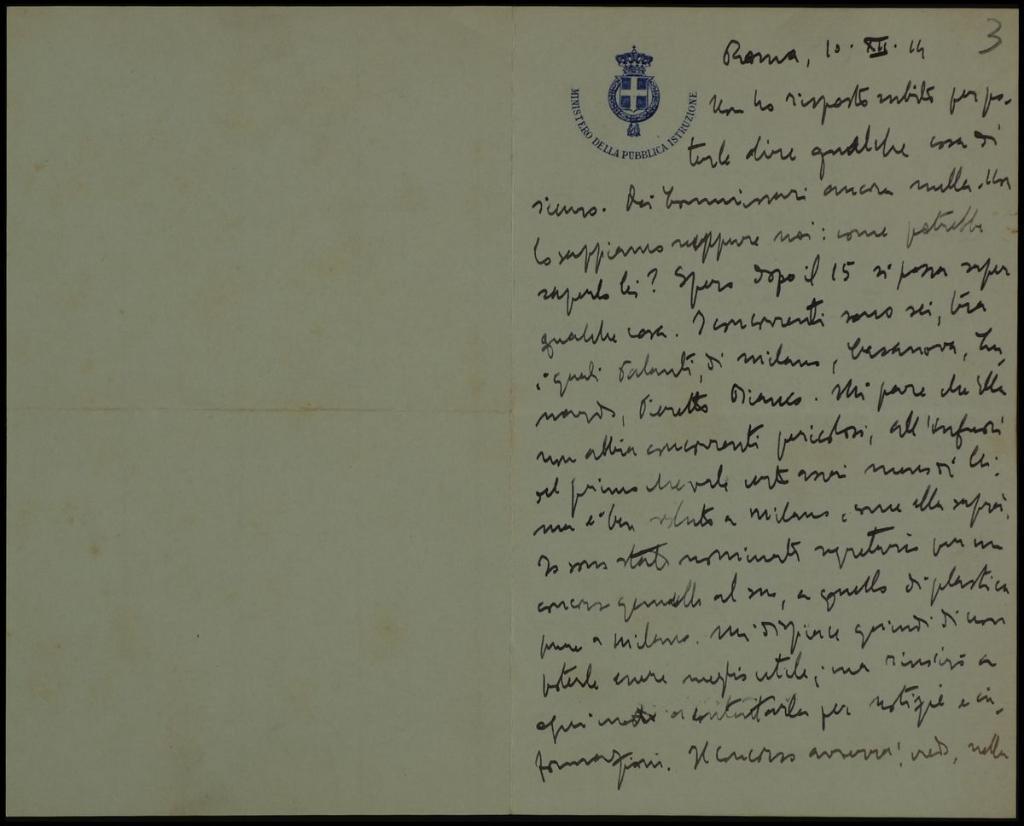 3
Roma, 10. XII. 14
MINISTERO DELLA PUBBLICA ISTRUZIONE
Non ho risposto subito per po-
terle dire qualche cosa di
sicuro. Dei Commissari ancora nulla. Non
lo sappiamo neppure noi: come potrebbe
saperlo lei? Spero dopo il 15 si possa saper
qualche cosa. I concorrenti sono sei, tra
i quali di Milano, Casanova,
Pieretto Bianco. Mi pare che Ella
non abbia concorrenti pericolosi, all'infuori
del primo che vale certo assai meno di lei:
ma è ben veduto a Milano, come ella saprà.
Io sono stato nominato segretario per un
concorso gemello al suo, a quello di plastica
pure a Milano. Mi dispiace quindi di non
poterle essere utile; ma riuscirò a
ogni modo a contentarla per notizie e in-
formazioni. Il concorso avverrà, credo, nella